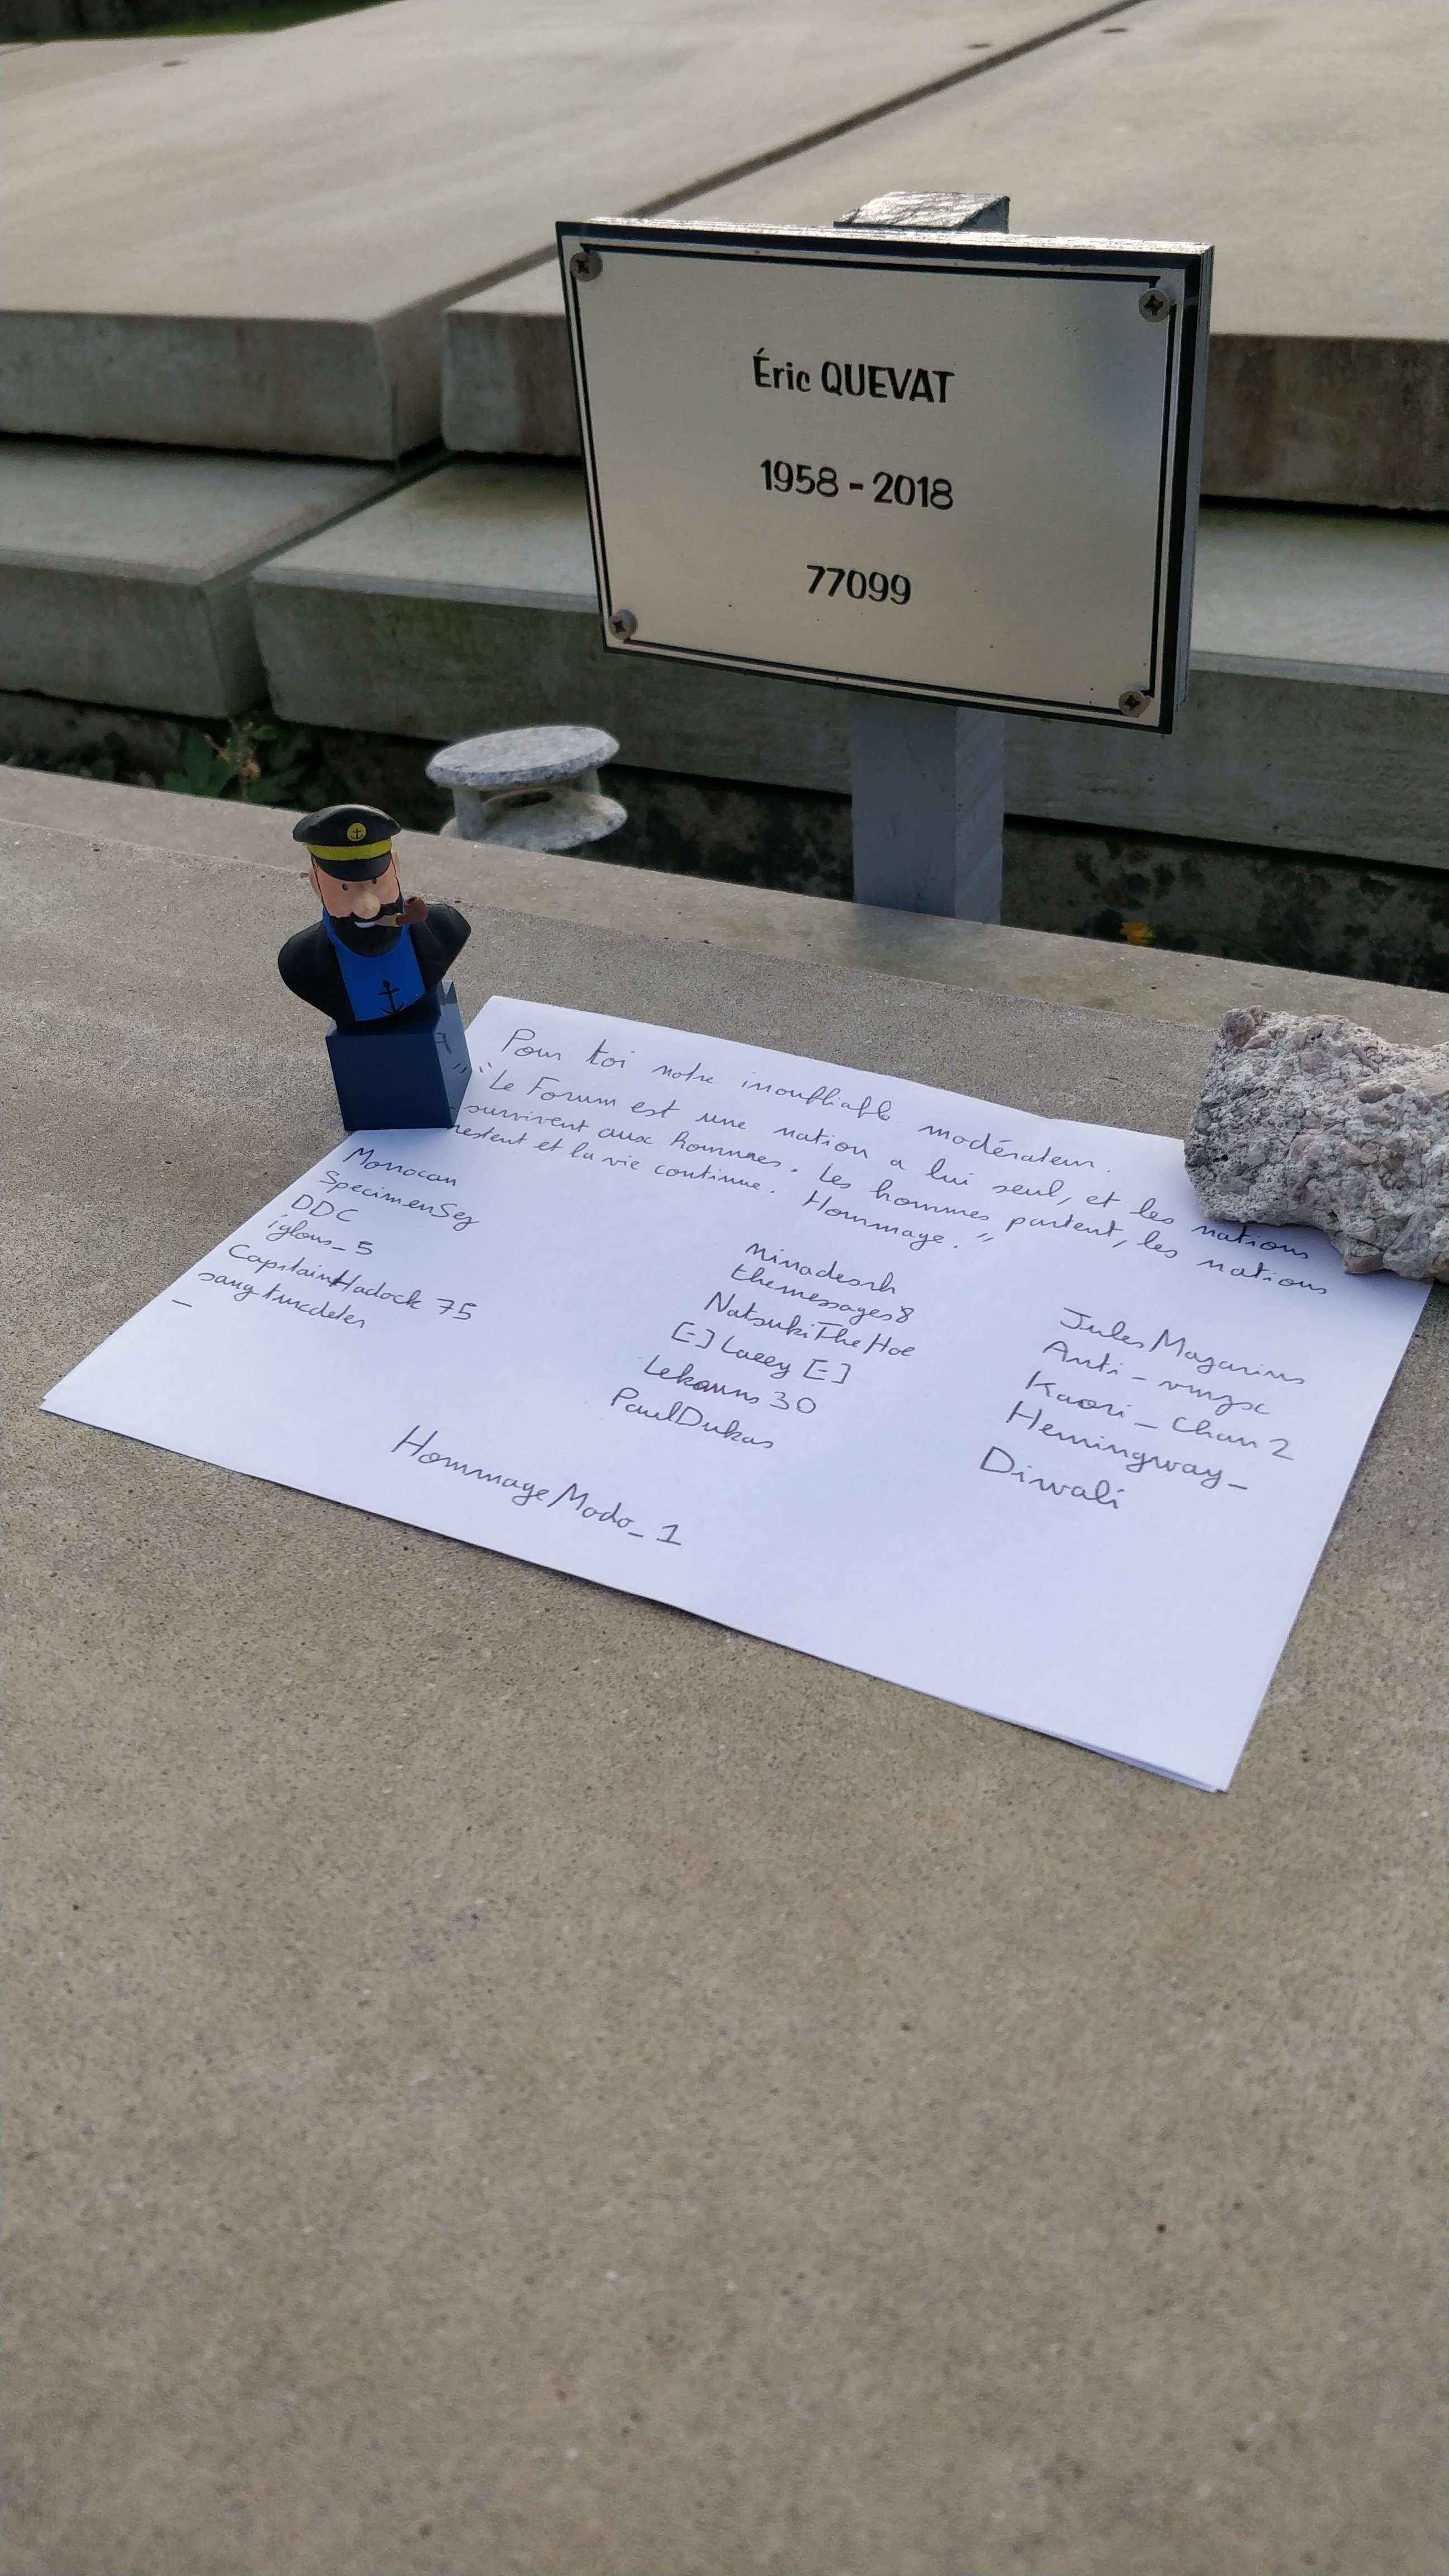 Éric QUEVAT
1958 - 2018
77099
Pour toi notre inoubliable modérateur.
"Le Forum est une nation a lui seul, et les nations
survivent aux hommes. Les hommes partent, les nations
restent et la vie continue. Hommage."
Monocan
SpecimenSey
DDC
iglous_5
CapitainHadock 75
sangtuedeter
_
Minadesrh
themessages8
NatsukiTheHoe
[-] Laeey [-]
Lekouns 30
PaulDukas
Jules Mazarins
Anti-vmgx
Kaori_Chan2
Hemingway_
Diwali
HommageModo_1